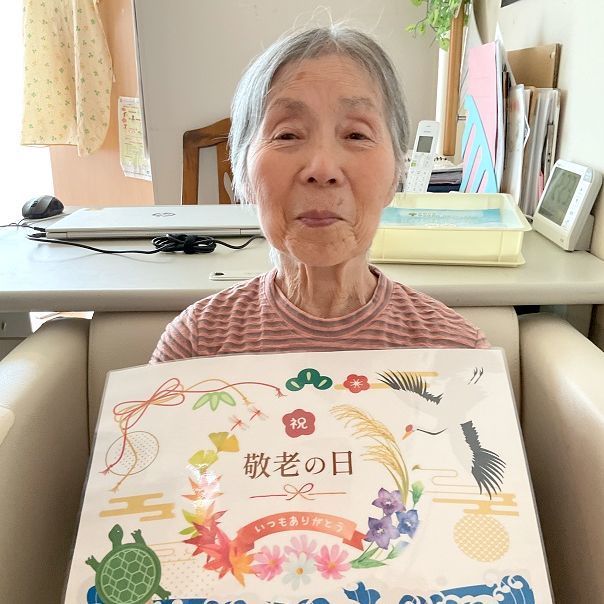 祝
敬老の日
いつもありがとう